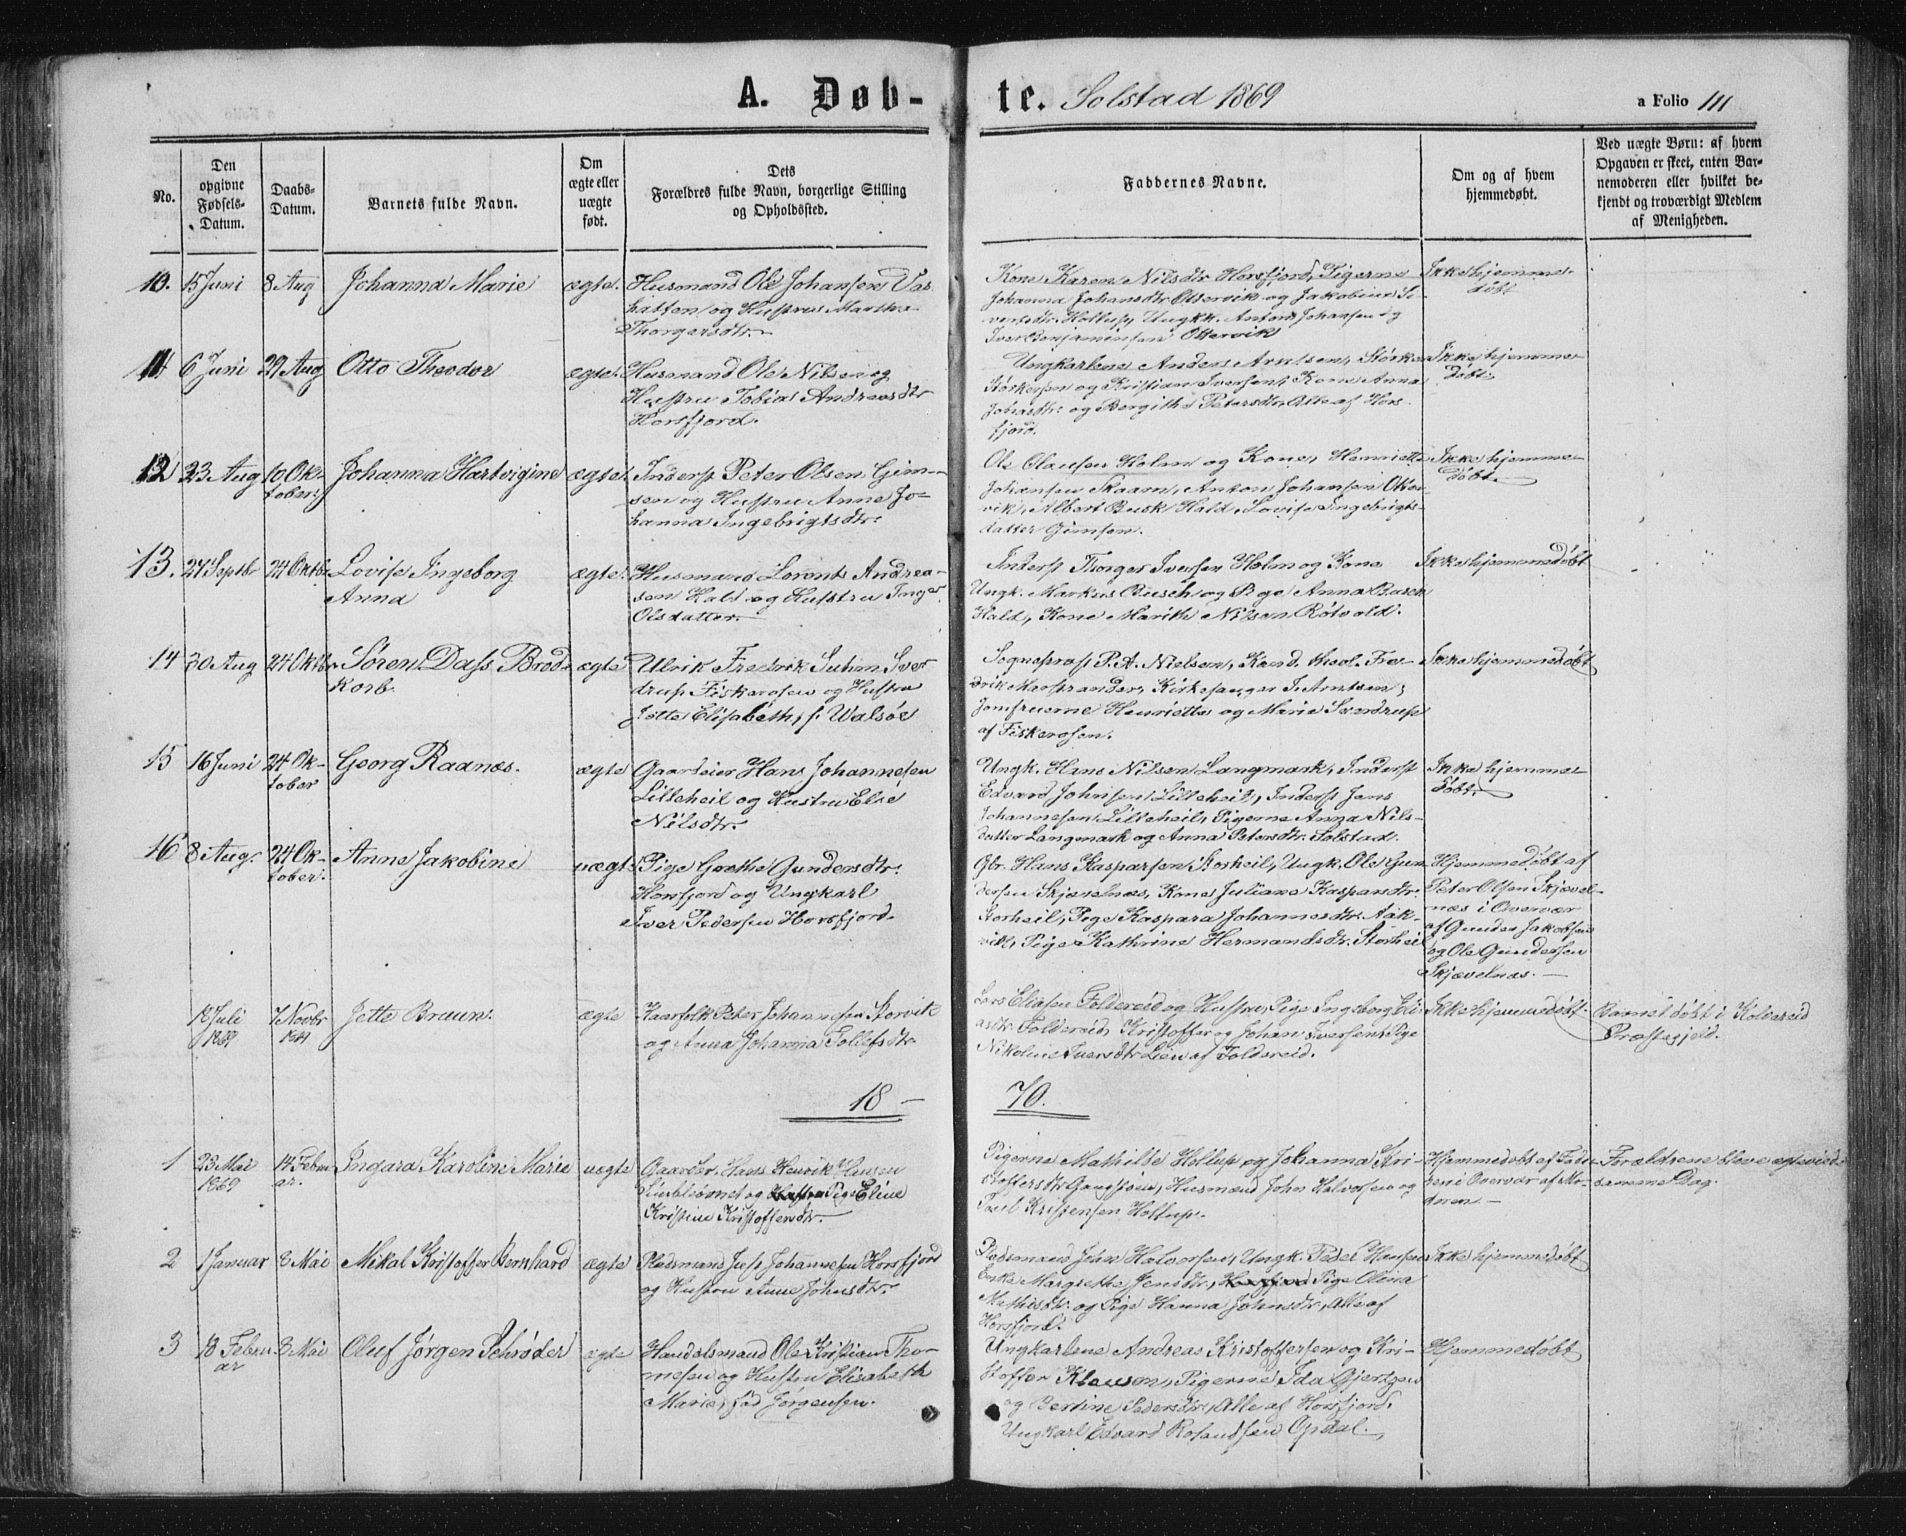 A. Døb-te. Solstad 1869
a Folio 111
No.
Den opgivne Fødsels-Datum.
Daabs-Datum.
Barnets fulde Navn.
Om ægte eller uægte født.
Dets Forældres fulde Navn, borgerlige Stilling og Opholdssted.
Faddernes Navne.
Om og af hvem hjemmedøbt.
Ved uægte Børn: af hvem Opgaven er skeet, enten Barnemoderen eller hvilket bekjendt og troværdigt Medlem af Menigheden.
10. 15 Juni 8 Aug Johanna Marie ægte. Husmand Ole Johansen Vas
hatten og Hustru Martha
Thorgersdtr.
Kone Karen Nilsdtr Horsfjord, Pigerne
Johanna Johansdtr Ottervik og Jakobine Si-
vertsdtr. Hollup, Ungkk. Anton Johansen og
Iver Benjaminsen Ottervik
Ikke hjemme-
døbt
11 6 Juni 29 Aug Otto Theodor ægte. Husmand Ole Nilsen og
Hustru Tobias Andreasdtr
Horsfjord.
Ungkarlene Anders Arntsen, Størker
Størkersen og Kristian Iversen, Kone Anna
Johasdtr. og Bergithe Petersdtr, Alle af Hors
fjord.
Ikke hjemme
døbt.
12 23 Aug 10 Ok-
tober. Johanna Hartvigine ægte. Inderst Peter Olsen Gim-
sen og Hustru Anne Jo-
hanna Ingebrigtsdtr.
Ole Olausen Holm og Kone, Henriette
Johansen Skaarn, Anton Johansen Otter-
vik, Albert Busk Hald, Lovise Ingebrigts-
datter Gimsen.
Ikke hjemme
døbt.
13. 27 Septbr 24 Oktbr. Lovise Ingeborg
Anna ægte. Husmand Lorents Andrea-
sen Hald og Hustru Inger
Olsdatter.
Inderst Thorger Iversen Holm og Kone
Ungk. Markus Busch og Pige Anna Busch
Hald, Kone Marith Nilsen Rötvold.
Ikke hjemmedøbt
14 30 Aug 24 Oktbr. Søren Dass Brod-
korb. ægte Ulrik Fredrik Suhm Sver
drup Fiskerosen og Hustru
Jette Elisabeth, f. Walsöe
Sogneprest P. A. Nielsen, Kand. theol. Fre-
drik Marstrander, Kirkesanger J. Arntsen,
Jomfruerne Henriette og Marie Sverdrup
af Fiskerosen.
Ikke hjemmedøbt
15 16 Juni 24 Ok-
tober Georg Raanæs. ægte Gaardeier Hans Johannesen
Lilleheil og Hustru Else
Nilsdtr.
Ungk. Hans Nilsen Langmark, Inderst
Edvard Johnsen Lilleheil, Inderst Jens
Johannesen Lilleheil, Pigerne Anna Nils-
datter Langmark og Anna Petersdtr. Solstad.
Ikke hjemme
døbt.
16 8 Aug. 24 Ok-
tober. Anne Jakobine uægte Pige Grethe Gundersdtr.
Horsfjord og Ungkarl
Iver Pedersen Horsfjord.
Gbr. Hans Kaspersen Storheil, Ungk. Ole Gun
dersen Skjævelnæs, Kone Juliane Kaspardtr.
Storheil, Pige Kaspara Johannesdtr. Aak-
vik, Pige Kathrine Hermandsdtr. Storheil
Hjemmedøbt af
Peter Olsen Skjævel-
næs i Overvær
af Gunder Jakobsen
og Ole Gundersen
Skjævelnæs.
18 Juli
1869 7 Novbr
1869 Jette Braun. ægte Kaarfolk Peter Johannesen Storvik
og Anna Johanna Tollefsdtr.
Lars Eliasen Foldereid og Hustru, Pige Ingeborg Eli
asdtr Foldereid, Kristoffer og Johan Iversen, Pige
Nikoline Iversdtr Lien af Foldereid.
Ikke hjemmedøbt.
Barnet døbt i Kolvereid
Præstegjeld.
18 —
70.
1 23 Mai
1869 14 Febru
ar. Ingara Karoline Marie uægte Gaardbr. Hans Henrik Hansen
og Hustru Pige Eline
Kristine Kristoffersdtr.
Pigerne Mathilde Hollup og Johanna Kri-
stoffersdtr, Husmænd John Halvorsen og
Paul Kristensen Hollup.
Hjemmedøbt af Fade-
ren i Overvær af Mo-
deren —
Forældrene bleve ægteviede
samme Dag.
2 1 Januar 8 Mai Mikal Kristoffer Bernhard ægte Pladsmand Jesp Johannesen Horsfjord
og Hustru Anne Johnsdtr.
Pladsmand John Halvorsen, Ungk. Peder Hansen
Enke Margrethe Jensdtr, Horsfjord Pige Olina
Mathisdtr. og Pige Hanna Johnsdtr, Alle af
Horsfjord.
Ikke hjemmedøbt
3 18 Febru
ar 8 Mai Oluf Jørgen Schrøder ægte Handelsmand Ole Kristian Tho-
mesen og Hustru Elisabeth
Marie, fød Jørgensen.
Ungkarlene Andreas Kristoffersen og Kri-
stoffer Klausen, Pigerne Ida Gjertzen
og Bertine Pedersdtr, Alle af Horsfjord,
Ungkarl Edvard Rosendsen Opdal.
Hjemmedøbt